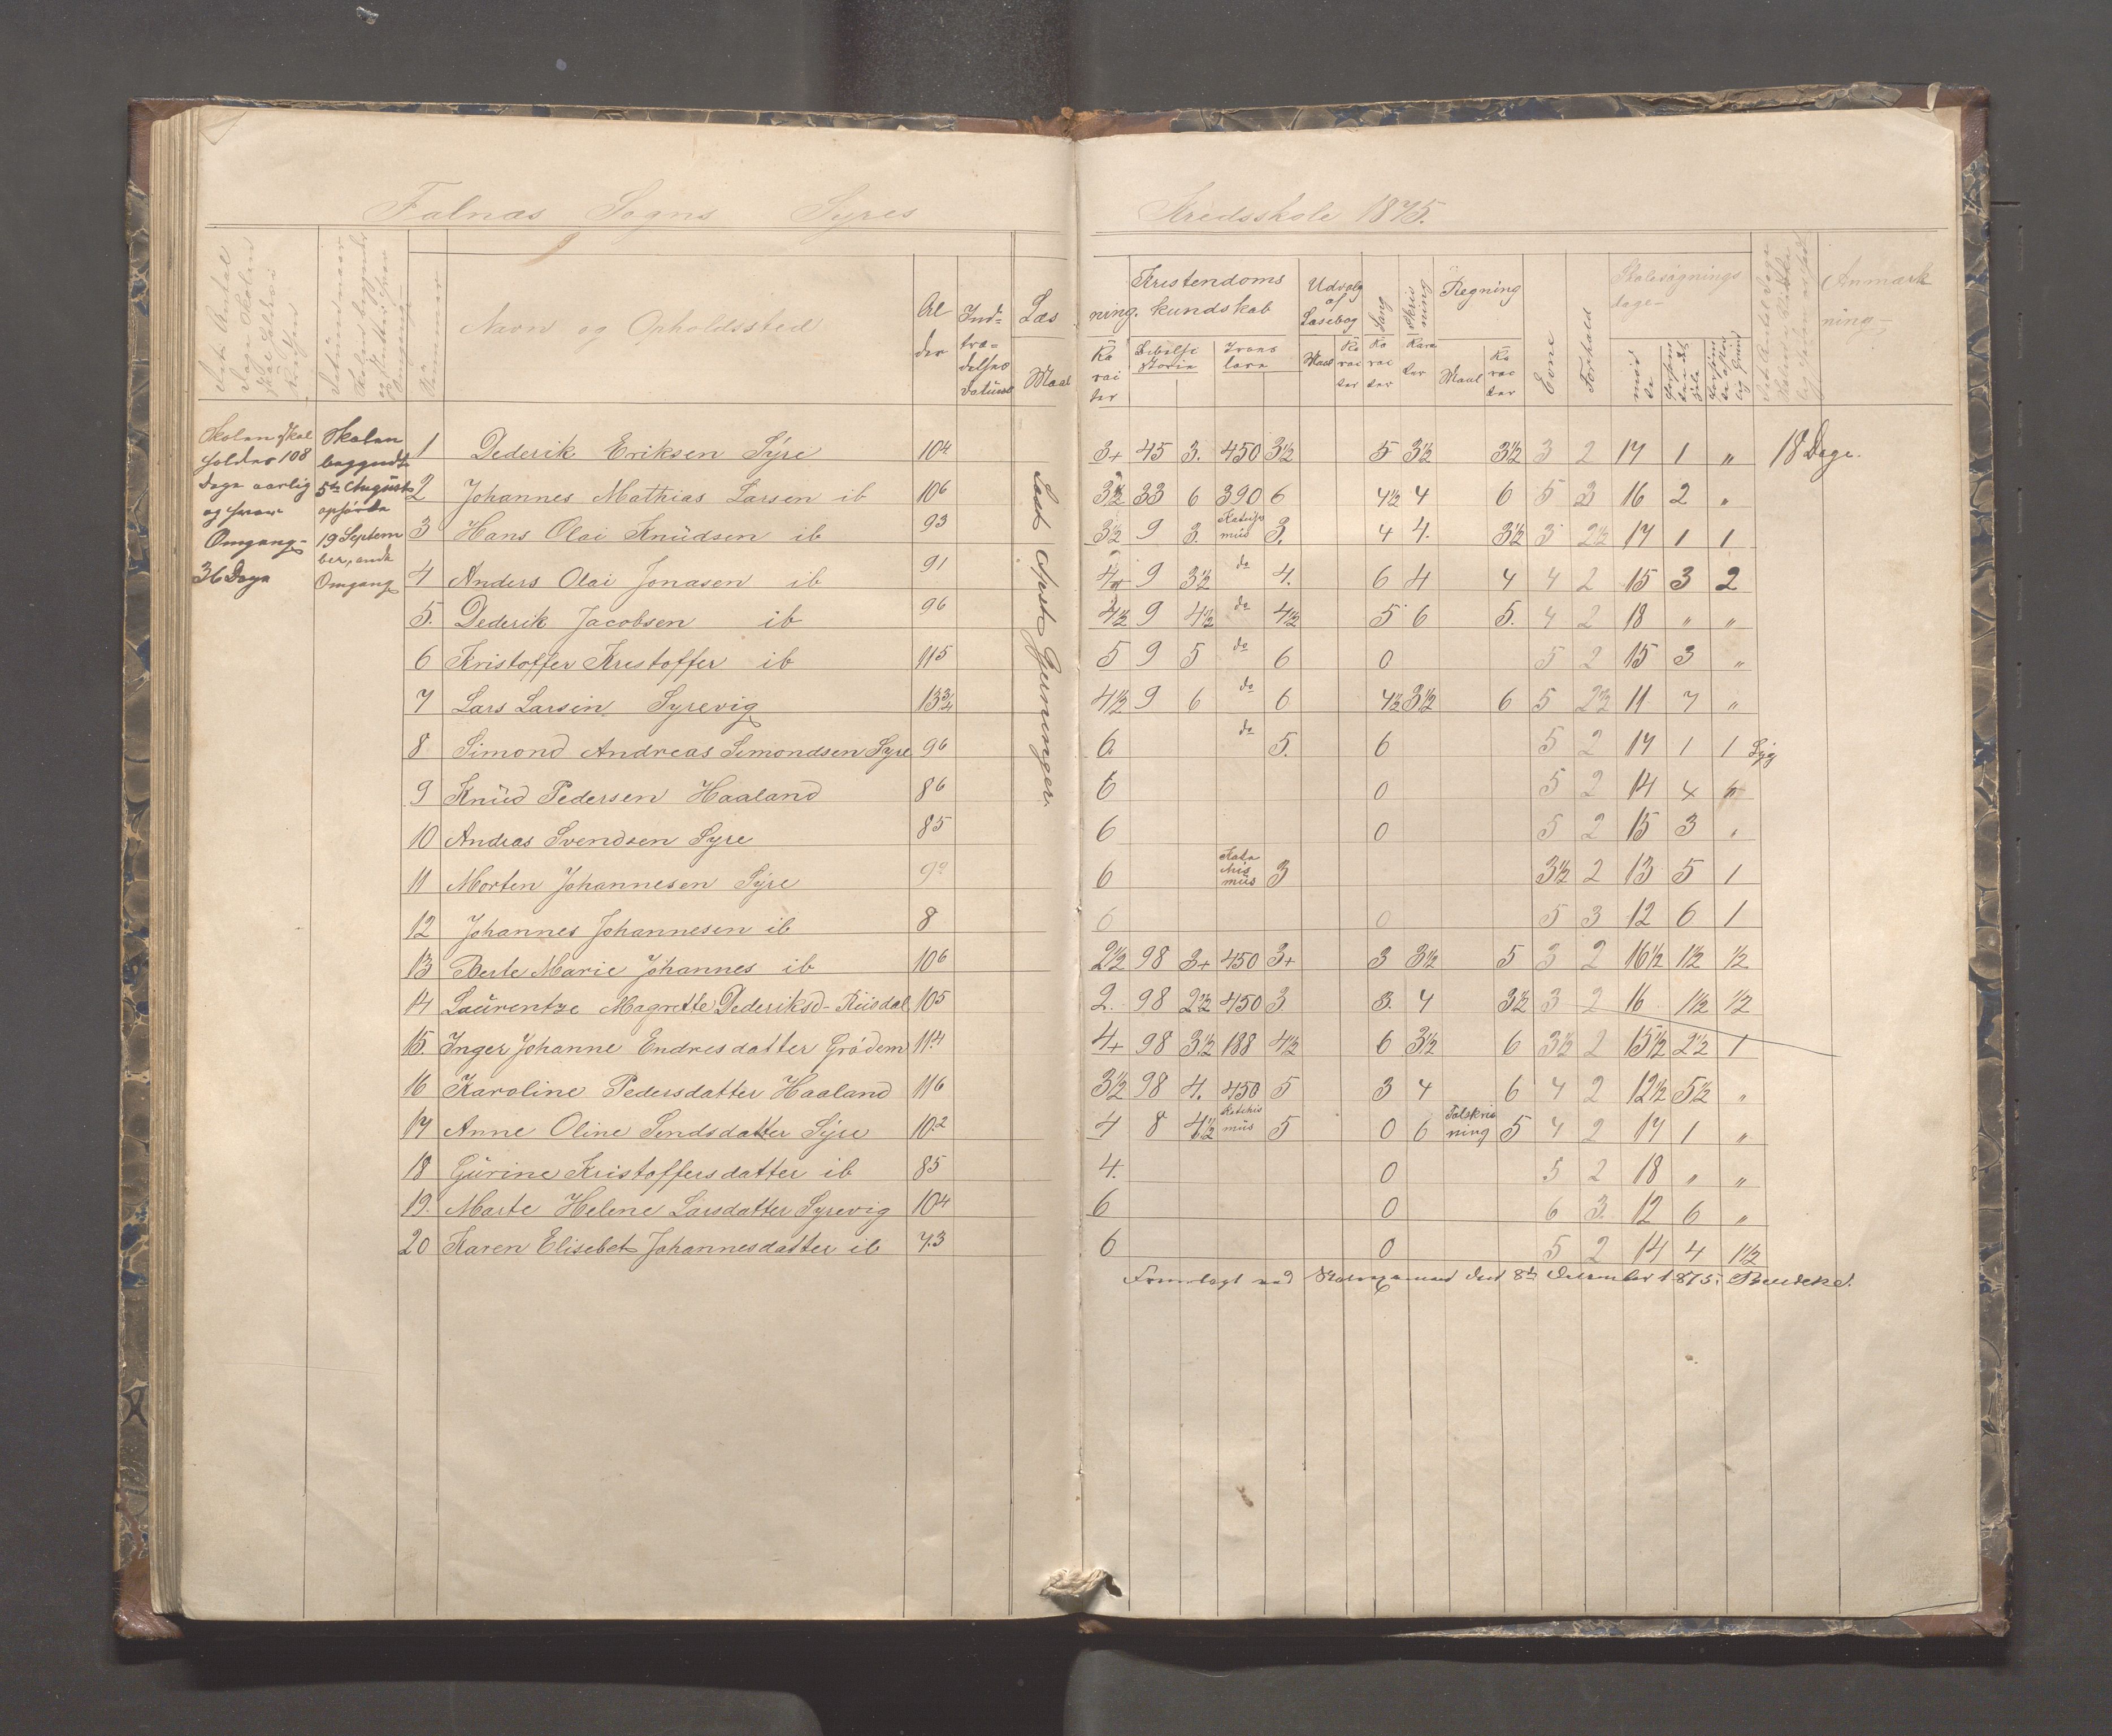 Falnas Sogns Syres Kredsskole 1875.
Navn og Opholdssted
Al der
Ind- træ- delses datum
Læs ning.
Maal
Ka rac ter
Kristendoms kundskab
Bibelhi storie
Troes lære
Udvalg af Læsebog
Maal
Ka rac ter
Sang
Ka rac ter
Skriv ning
Kara ter
Regning
Maal
Ka rac ter
Evne
Forhold
Skolesøgnings dage
mød te
Anmærk ning
Skolen skal holdes 108 Dage aarlig og hver Omgang 36 Dage
Skolen begyndte 5te August ophørte 19 Septem ber, ende Omgang
Læst Apost Gerninger.
1 Dederik Eriksen Sÿre 104 3+ 45 3. 450 3½ 5 3½ 3½ 3 2 17 1 „ 18 Dage.
2 Johannes Mathias Larsen ib 106 3½ 33 6 390 6 4½ 4 6 5 3 16 2 „
3 Hans Olai Knüdsen ib 93 3½ 9 3. 3. 4 4. 3½ 3 2½ 17 1 1
4 Anders Olai Jonasen ib 91 4+ 9 3½ do 4. 6 4 4 4 2 15 3 2
5. Dederik Jacobsen ib 96 4½ 9 4½ do 4½ 5 6 5. 4 2 18 „ „
6 Kristoffer Kristoffer ib 115 5 9 5 do 6 0 5 2 15 3 „
7 Lars Larsin Syrevig 13¾ 4½ 9 6 do 6 4½ 3½ 6 5 2½ 11 7 „
8 Simond Andreas Simondsen Syre 96 6. do 5. 6 5 2 17 1 1 Syg
9 Knüd Pedersen Haaland 86 6 0 5 2 14 4 „
10 Andras Svendsen Syre 85 6 0 5 2 15 3 „
11 Morten Johannesen Sÿre 6 Kate his müs 3 3½ 2 13 5 1
12 Johannes Johannesen ib 8 6 0 5 3 12 6 1
13 Berte Marie Johannes ib 106 2½ 98 3+ 450 3+ 3 3½ 5 3 2 16½ 1½ ½
14 Laürentze Magrette Dederiksd- Riisdal 105 2. 98 2½ 450 3. 3. 4 3½ 3 2 16 1½ ½
15. Inger Johanne Endresdatter Grødem 114 4+ 98 3½ 188 4½ 6 3½ 6 3½ 2 15½ 2½ 1
16 Karoline Pedersdatter Haaland 116 3½ 98 4. 450 5 3 4 6 4 2 12½ 5½ „
17 Anne Oline Sendsdatter Sÿre 10.2 4 8 4½ Katchis müs 5 0 6 Talskriv ning 5 4 2 17 1 „
18 Gürine Kristoffersdatter ib 85 4. 0 5 2 18 „ „
19. Marte Helene Larsdatter Syrevig 104 6 0 6 3. 12 6 „
20 Karen Elisebet Johannesdatter ib 7.3 6 0 5 2 14 4 1½
Fremlagt ved Skoleexamen den 8de December 1875.